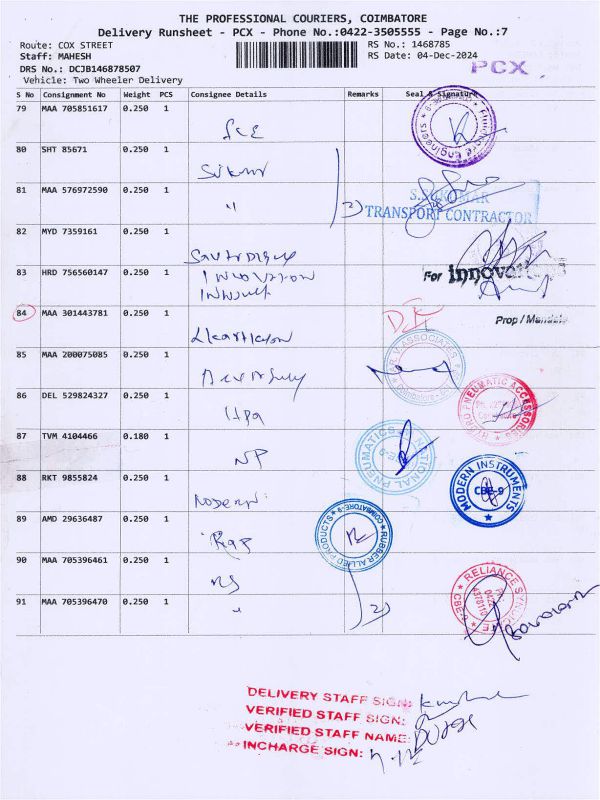 THE PROFESSIONAL COURIERS, COIMBATORE
Delivery Runsheet - PCX - Phone No.:0422-3505555 - Page No.:7
Route: COX STREET
RS No.: 1468785
Staff: MAHESH
RS Date: 04-Dec-2024
DRS No.: DCJB146878507
PCX
Vehicle: Two Wheeler Delivery
S No Consignment No Weight PCS Consignee Details Remarks Seal & Signature
79 MAA 705851617 0.250 1
80 SHT 85671 0.250 1
81 MAA 576972590 0.250 1 " 2)
S.SUKUMAR
TRANSPORT CONTRACTOR
82 MYD 7359161 0.250 1
83 HRD 756560147 0.250 1 Innovation
For innovations
84 MAA 301443781 0.250 1
Prop / Mandate
85 MAA 200075085 0.250 1
V. ASSOCIATES
86 DEL 529824327 0.250 1 Hpa
HYDRO PNEUMATIC ACCESSORIES
87 TVM 4104466 0.180 1 NP
NATIONAL PNEUMATICS
88 RKT 9855824 0.250 1 Modern
MODERN INSTRUMENTS
CBE-9
89 AMD 29636487 0.250 1 Rap
RUBBER ALLIED PRODUCTS
COIMBATORE-9
90 MAA 705396461 0.250 1 RS
RELIANCE SYNDICATE
91 MAA 705396470 0.250 1 " 2)
DELIVERY STAFF SIGN:
VERIFIED STAFF SIGN:
VERIFIED STAFF NAME:
INCHARGE SIGN: